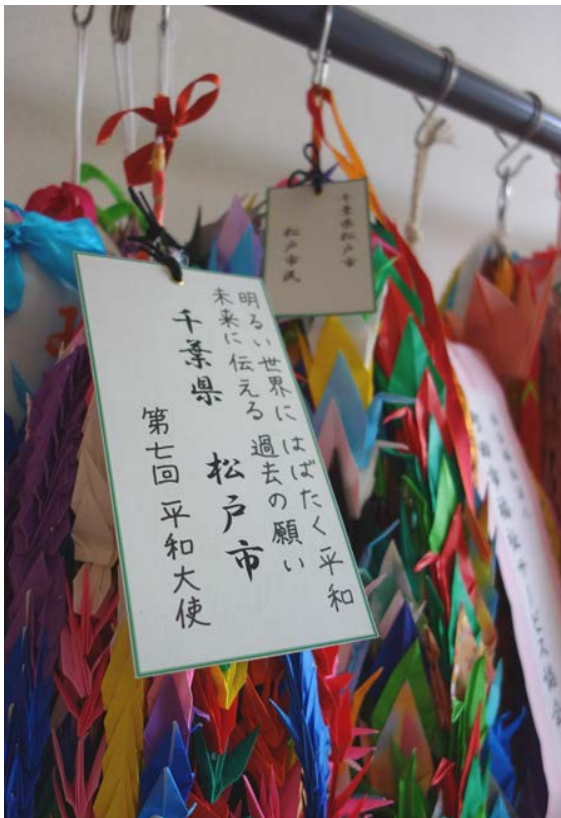 明るい世界に はばたく平和
未来に伝える 過去の願い
千葉県 松戸市
第七回 平和大使
千葉県松戸市
松戸市民